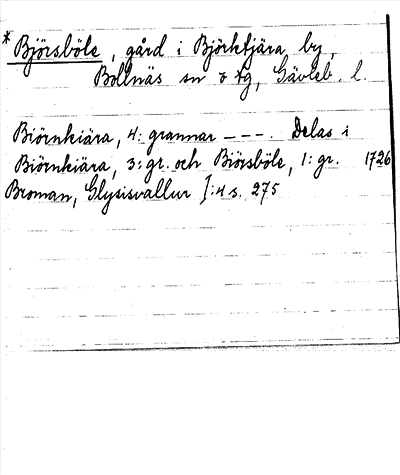 * Björsböle, gård i Björktjära by,
Bollnäs sn o tg, Gävleb. l.
Biörnkiära, 4: grannar - - - . Delas i
Biörnkiära, 3: gr. och Biörsböle, 1: gr. 1726
Broman, Glysisvallur I: 4 s. 275